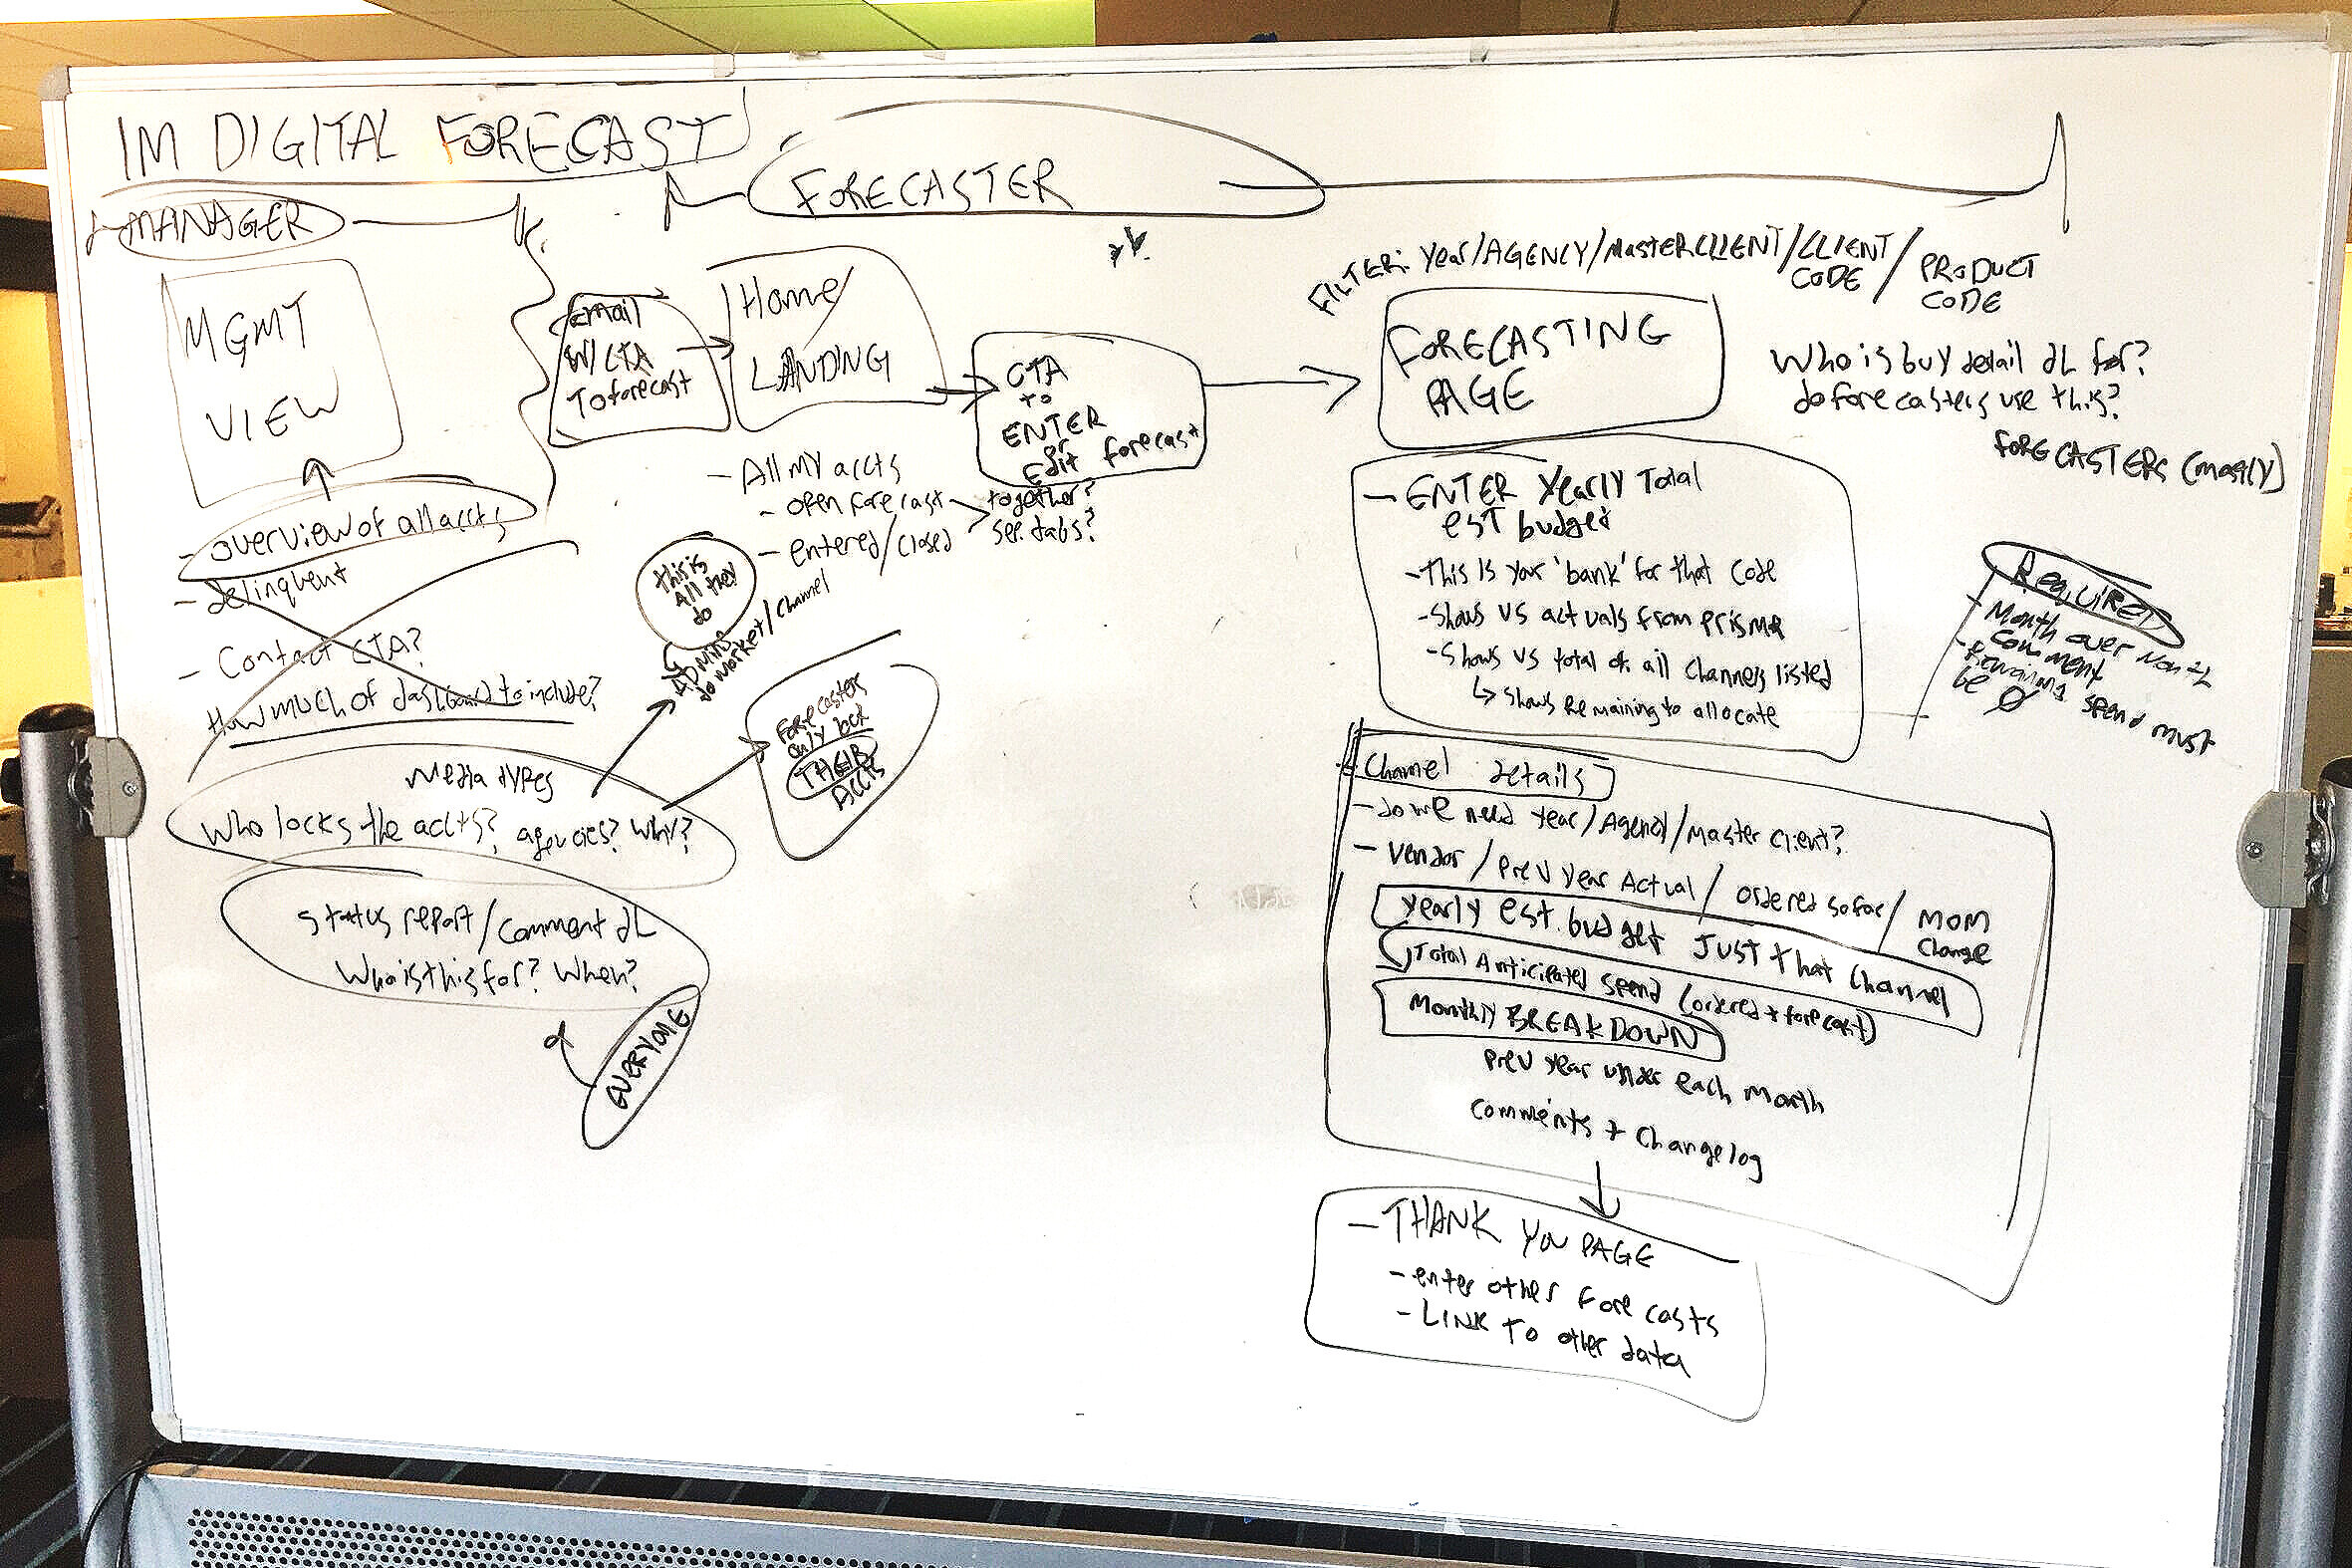 IM DIGITAL FORECAST
MANAGER
MGMT
VIEW
- overview of all accts
- delinquent
- Contact CTA?
How much of dashboard to include?
Media types
Who locks the accts? agencies? Why?
status report/comment dL
Who is this for? When?
EVERYONE
FORECASTER
Email
W/CTA
To forecast
Home/
LANDING
- All my accts
- open forecast
- entered/closed
together?
sep. tabs?
CTA
to
ENTER
or
Edit forecast
this is
All they
do
ADMINS
do market/channel
Forecasters
only but
THEIR
Accts
FILTER: Year/AGENCY/MASTERCLIENT/CLIENT
CODE / PRODUCT
CODE
FORECASTING
PAGE
Who is buy detail dL for?
do forecasters use this?
FORECASTERS (mostly)
- ENTER Yearly Total
est budget
- This is your 'bank' for that code
- Shows vs actuals from prisma
- Shows vs total of all channels listed
↳ shows remaining to allocate
Required
- Month over Month
comment
- Remaining spend must
be Ø
Channel details
- do we need year/Agency/Master client?
- Vendor / Prev Year Actual / ordered so far / MOM
change
Yearly est. budget Just that channel
Total Anticipated Spend (ordered + forecast)
Monthly BREAKDOWN
Prev year under each month
Comments + Changelog
- THANK YOU PAGE
- enter other forecasts
- LINK TO other data